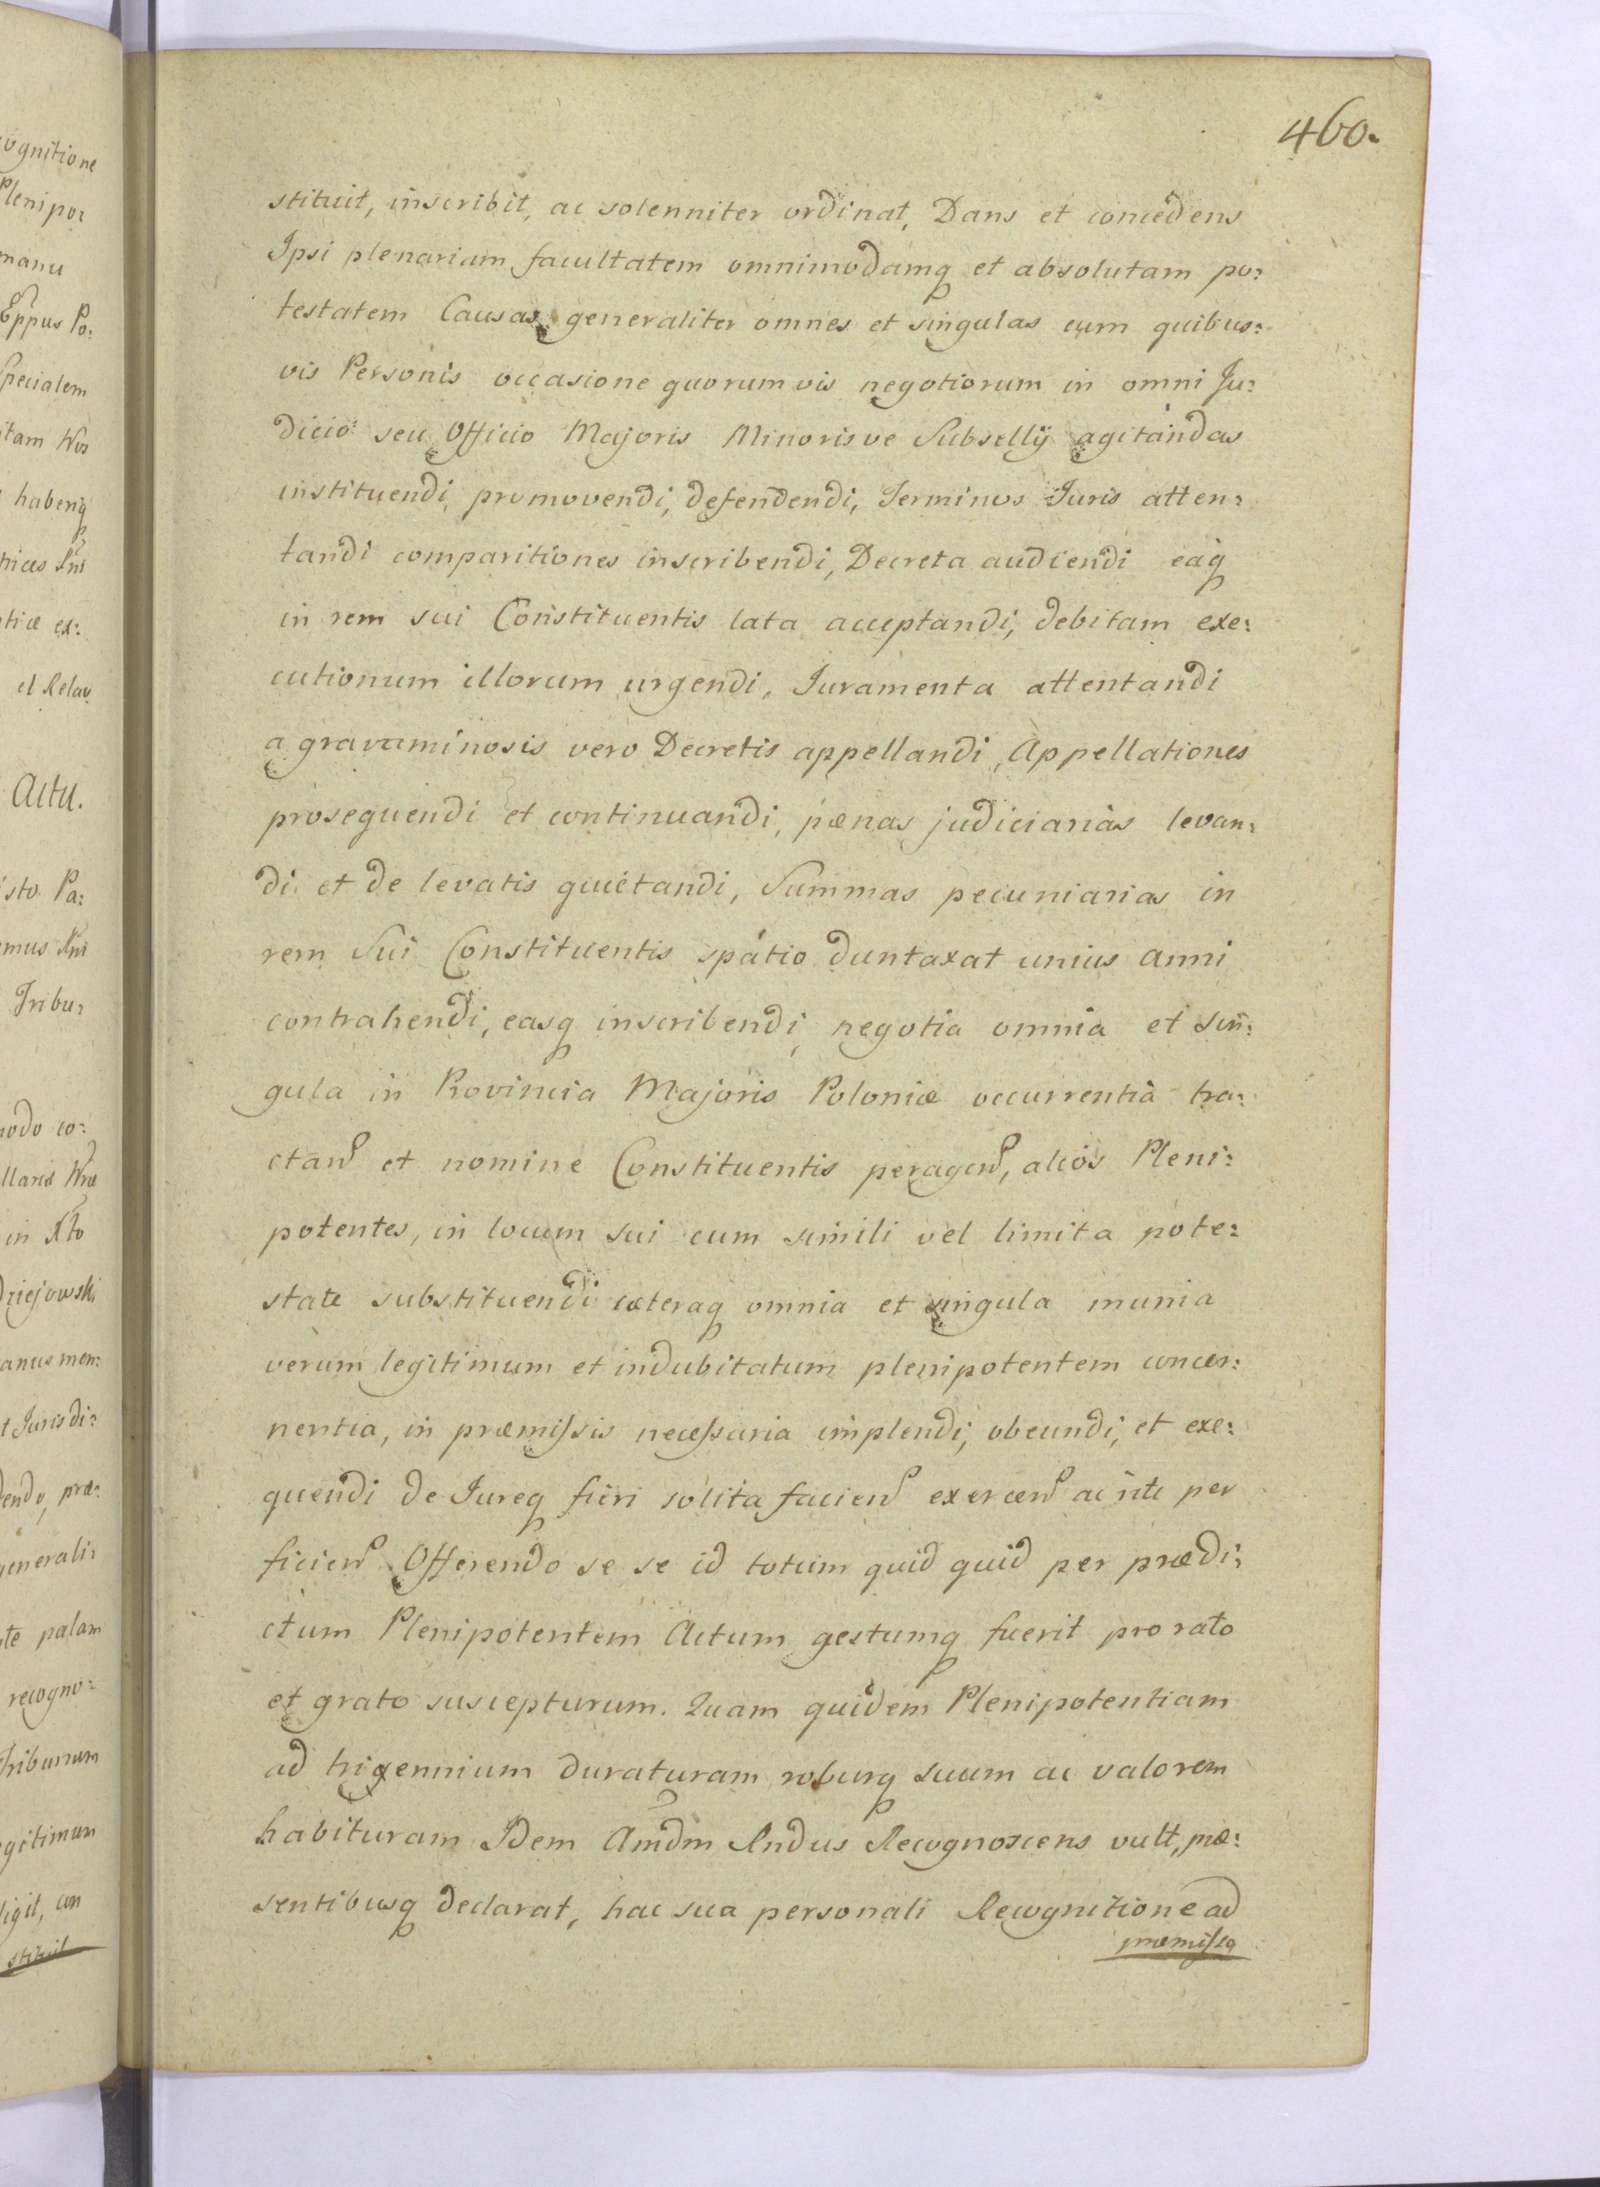 460.
stituit, inscribit, ac solenniter ordinat, Dans et concedens
Ipsi plenariam facultatem omnimodamq et absolutam po:
testatem Causas generaliter omnes et singulas cum quibus:
vis Personis occasione quorumvis negotiorum in omni Ju:
dicio seu Officio Majoris Minorisve Subsellij agitandas
instituendi, promovendi, defendendi, Terminos Juris atten:
tandi comparitiones inscribendi, Decreta audiendi eaq
in rem sui Constituentis lata acceptandi, debitam exe:
cutionum illorum urgendi, Juramenta attentandi
a gravaminosis vero Decretis appellandi, Appellationes
prosequendi et continuandi, pænas judiciarias levan:
di et de levatis quietandi, Summas pecuniarias in
rem Sui Constituentis spatio duntaxat unius anni
contrahendi, easq inscribendi, negotia omnia et sin:
gula in Provincia Majoris Poloniæ occurrentia tra:
ctand et nomine Constituentis peragend, alios Pleni:
potentes, in locum sui cum simili vel limita pote:
state substituendi cæteraq omnia et singula munia
verum legitimum et indubitatum plenipotentem concer:
nentia, in præmissis necessaria implendi, obeundi, et exe:
quendi de Jureq fieri solita faciend exercend ac rite per
ficiend Offerendo se se id totum quid quid per prædi:
ctum Plenipotentem Actum gestumq fuerit pro rato
et grato suscepturum. Quam quidem Plenipotentiam
ad trigennium duraturam roburq suum ac valorem
habituram Idem Amdm Rndus Recognoscens vult, præ:
sentibusq declarat, hac sua personali Recognitione ad
præmissa